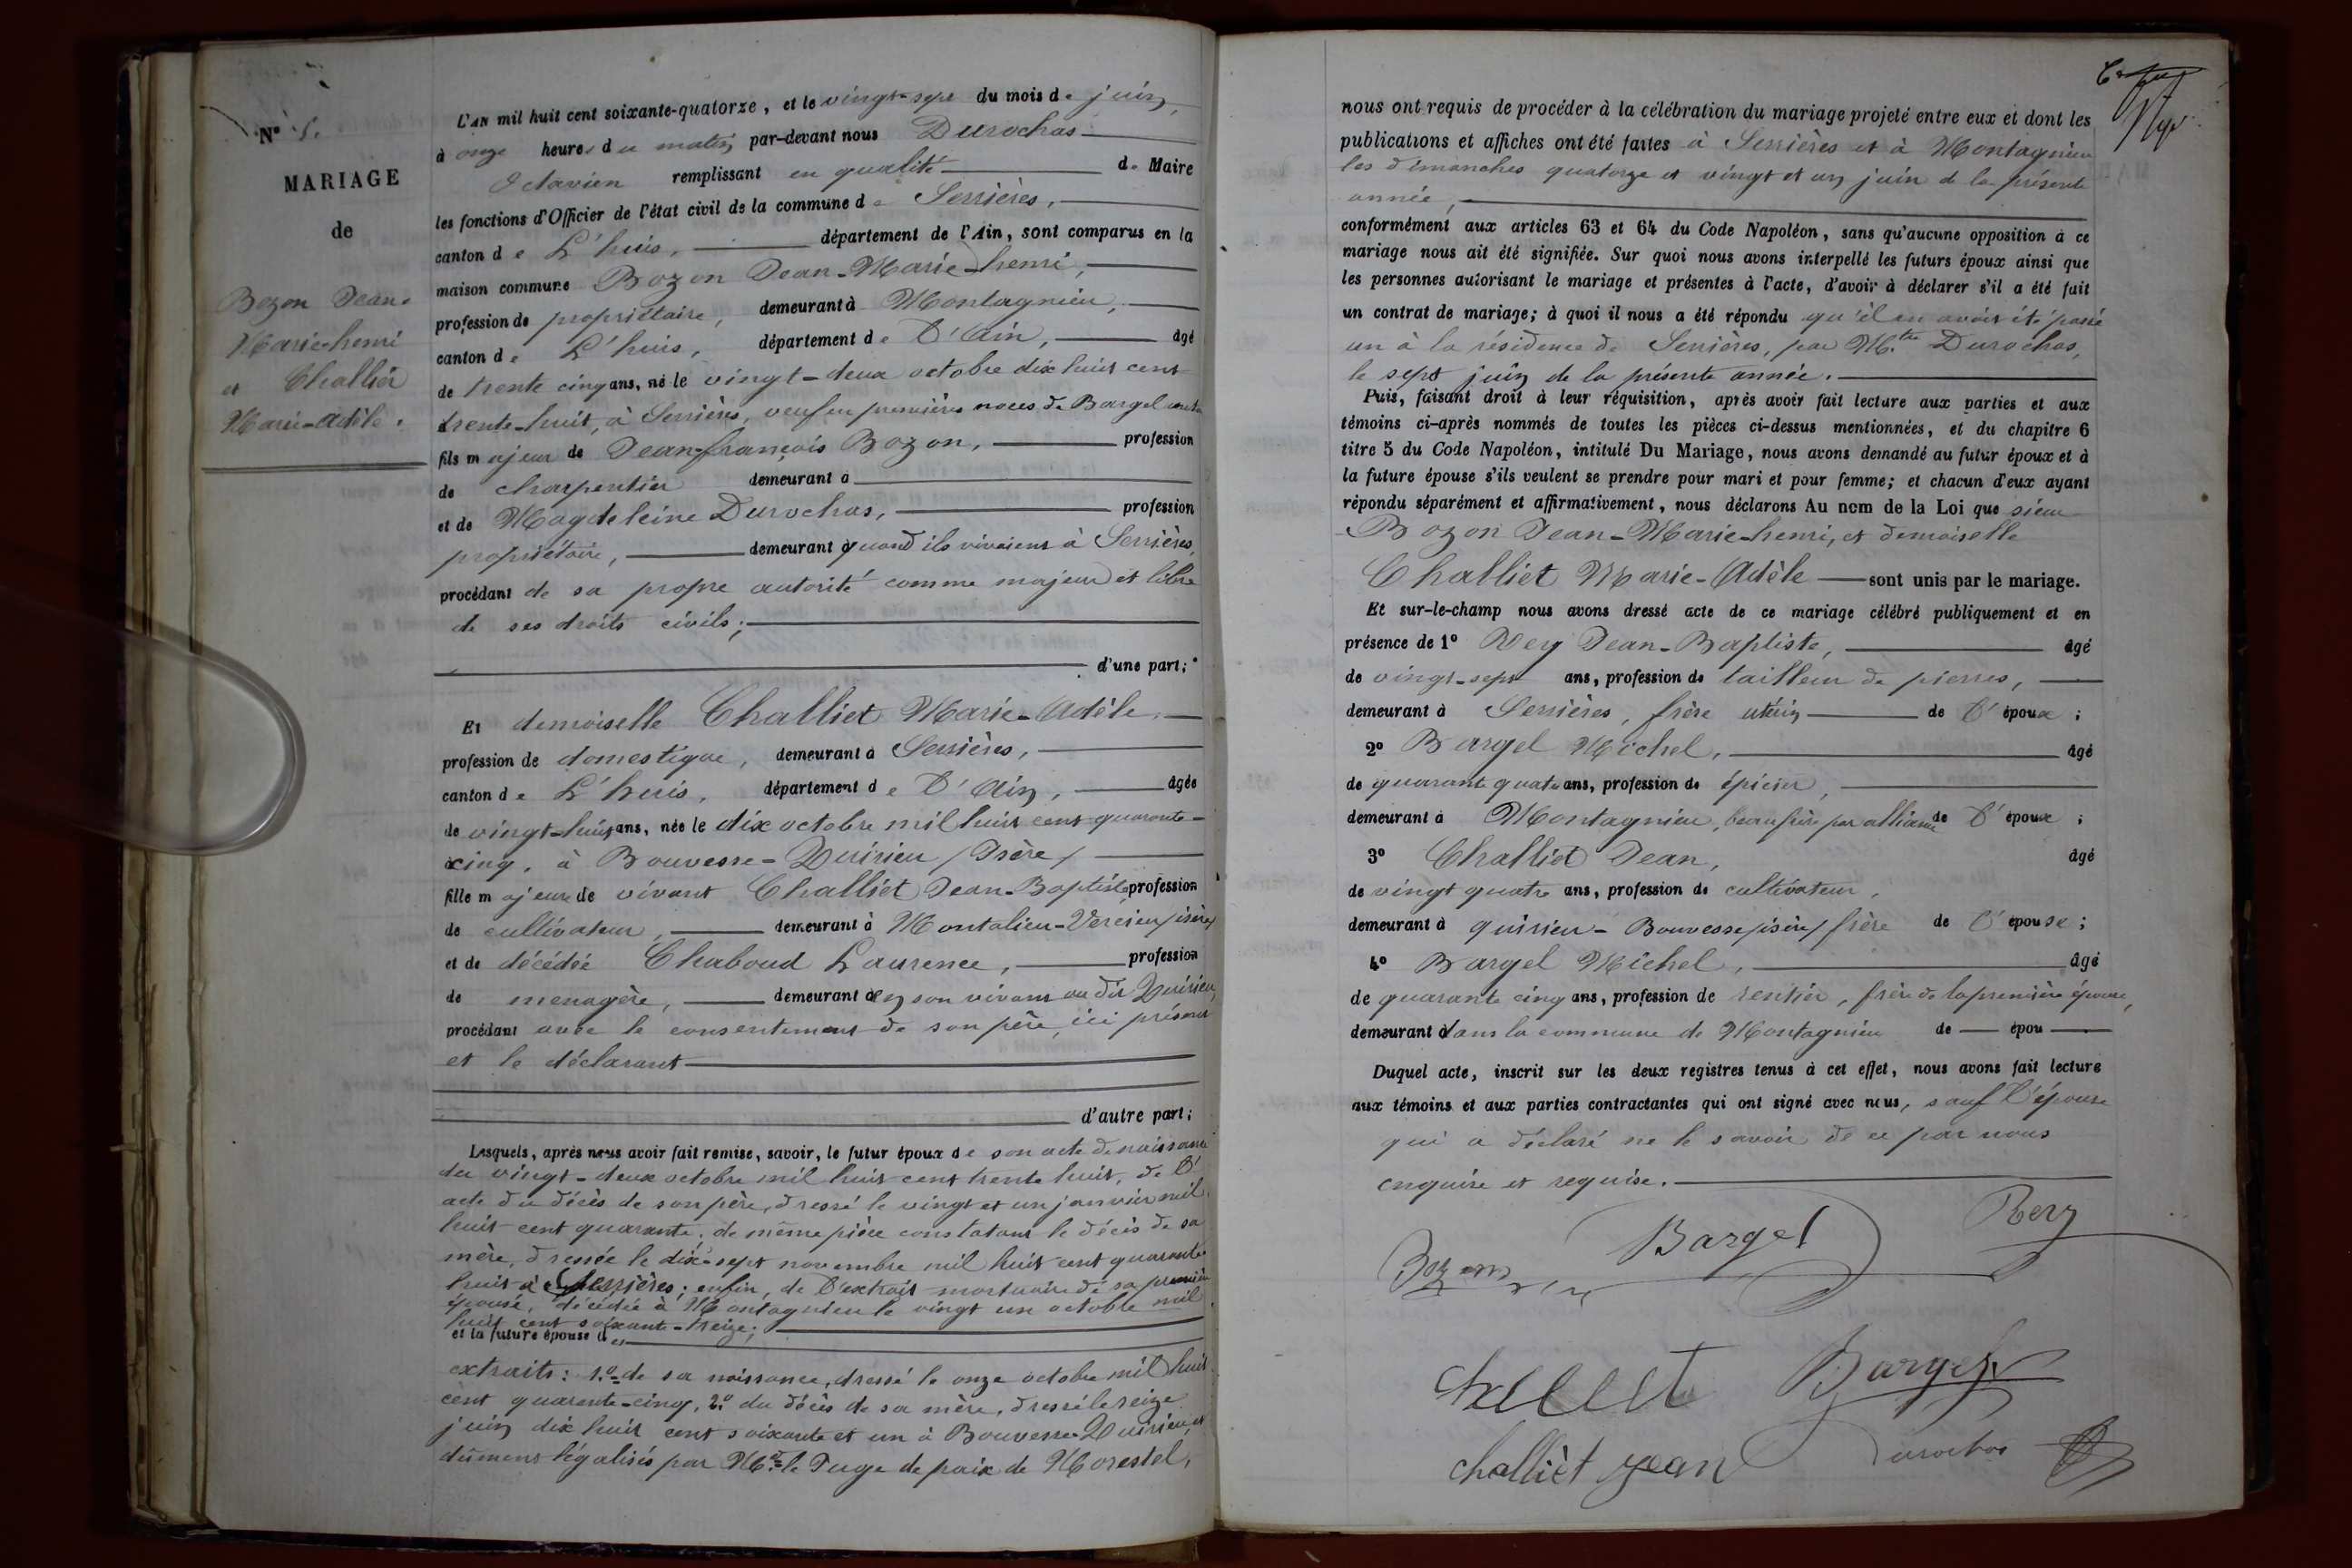 N° 5.
MARIAGE
de
Bozon Jean-
Marie-henri
et Challiet
Marie-Adèle.
L'AN mil huit cent soixante-quatorze, et le vingt-sept du mois de juin,
à onze heures du matin par-devant nous Durochas
Octavien remplissant en qualité de Maire
les fonctions d'Officier de l'état civil de la commune de Serrières,
canton de L'huis, département de l'Ain, sont comparus en la
maison commune Bozon Jean-Marie-henri,
profession de propriétaire, demeurant à Montagnieu,
canton de L'huis, département de l'Ain, âgé
de trente cinq ans, né le vingt-deux octobre dix huit cent
trente-huit, à Serrières, veuf en premières noces de Bargel
fils majeur de Jean-françois Bozon, profession
de charpentier demeurant à
et de Magdeleine Durochas, profession
propriétaire, demeurant quand ils vivaient à Serrières,
procédant de sa propre autorité comme majeur et libre
de ses droits civils;
d'une part;
Et demoiselle Challiet Marie-Adèle,
profession de domestique, demeurant à Serrières,
canton de L'huis, département de l'Ain, âgée
de vingt-huit ans, née le dix octobre mil huit cent quarante-
cinq, à Bouvesse-Quirieu (Isère)
fille majeure de vivant Challiet Jean-Baptiste profession
de cultivateur, demeurant à Montalieu-Vercieu (isère)
et de décédée Chaboud Laurence, profession
de menagère, demeurant en son vivant au dit Quirieu,
procédant avec le consentement de son père, ici présent
et le déclarant
d'autre part;
Lesquels, après nous avoir fait remise, savoir, le futur époux de son acte de naissance
du vingt-deux octobre mil huit cent trente huit, de l'
acte du décès de son père, dressé le vingt et un janvier mil
huit cent quarante; de même pièce constatant le décès de sa
mère, dressée le dix-sept novembre mil huit cent quarante
huit à Serrières; enfin, de l'extrait mortuaire de sa première
épouse, décédée à Montagnieu le vingt un octobre mil
huit cent soixante-treize;
et la future épouse des
extraits: 1.º de sa naissance, dressé le onze octobre mil huit
cent quarante-cinq, 2.º du décès de sa mère, dressé le seize
juin dix huit cent soixante et un à Bouvesse-Quirieu, et
dûment légalisés par Mr. le Juge de paix de Morestel,
nous ont requis de procéder à la célébration du mariage projeté entre eux et dont les
publications et affiches ont été faites à Serrières et à Montagnieu
les dimanches quatorze et vingt et un juin de la présente
année,
conformément aux articles 63 et 64 du Code Napoléon, sans qu'aucune opposition à ce
mariage nous ait été signifiée. Sur quoi nous avons interpellé les futurs époux ainsi que
les personnes autorisant le mariage et présentes à l'acte, d'avoir à déclarer s'il a été fait
un contrat de mariage; à quoi il nous a été répondu qu'il en avait été passé
un à la résidence de Serrières, par M.tre Durochas,
le sept juin de la présente année.
Puis, faisant droit à leur réquisition, après avoir fait lecture aux parties et aux
témoins ci-après nommés de toutes les pièces ci-dessus mentionnées, et du chapitre 6
titre 5 du Code Napoléon, intitulé Du Mariage, nous avons demandé au futur époux et à
la future épouse s'ils veulent se prendre pour mari et pour femme; et chacun d'eux ayant
répondu séparément et affirmativement, nous déclarons Au nom de la Loi que sieur
Bozon Jean-Marie-henri, et demoiselle
Challiet Marie-Adèle sont unis par le mariage.
Et sur-le-champ nous avons dressé acte de ce mariage célébré publiquement et en
présence de 1° Rey Jean-Baptiste, âgé
de vingt-sept ans, profession de tailleur de pierres,
demeurant à Serrières, frère utérin de l'époux;
2° Bargel Michel, âgé
de quarante quatre ans, profession de épicier,
demeurant à Montagnieu, beau frère par alliance de l'époux;
3° Challiet Jean, âgé
de vingt quatre ans, profession de cultivateur,
demeurant à quirieu-Bouvesse (isère) frère de l'épouse;
4° Bargel Michel, âgé
de quarante cinq ans, profession de rentier, frère de la première épouse,
demeurant dans la commune de Montagnieu de épou
Duquel acte, inscrit sur les deux registres tenus à cet effet, nous avons fait lecture
aux témoins et aux parties contractantes qui ont signé avec nous, sauf l'épouse
qui a déclaré ne le savoir de ce par nous
enquise et requise.
Bozon Bargel Rey
challiet Bargel
challièt jean Durochas